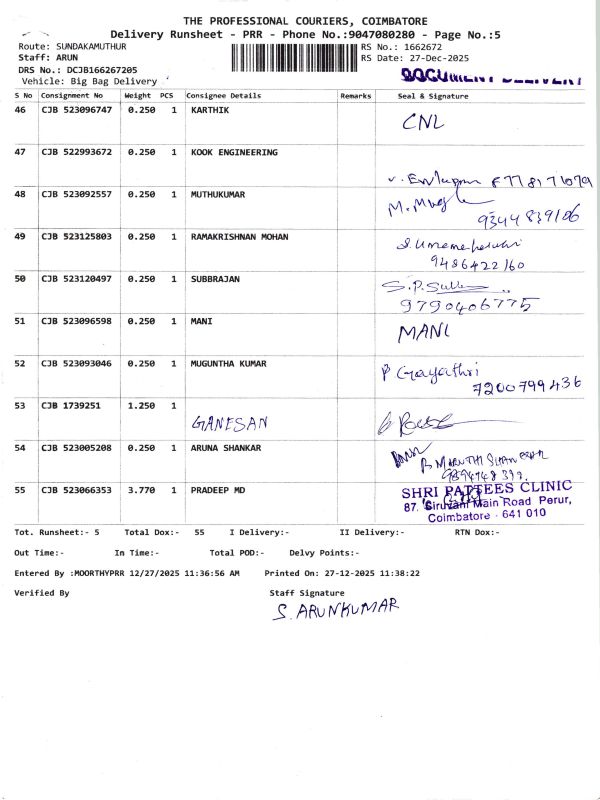 THE PROFESSIONAL COURIERS, COIMBATORE
Delivery Runsheet - PRR - Phone No.:9047080280 - Page No.:5
Route: SUNDAKAMUTHUR
RS No.: 1662672
Staff: ARUN
RS Date: 27-Dec-2025
DRS No.: DCJB166267205
Vehicle: Big Bag Delivery
S No Consignment No Weight PCS Consignee Details Remarks Seal & Signature
46 CJB 523096747 0.250 1 KARTHIK CNL
47 CJB 522993672 0.250 1 KOOK ENGINEERING
48 CJB 523092557 0.250 1 MUTHUKUMAR
49 CJB 523125803 0.250 1 RAMAKRISHNAN MOHAN
9486422160
50 CJB 523120497 0.250 1 SUBBRAJAN
9790406775
51 CJB 523096598 0.250 1 MANI MANI
52 CJB 523093046 0.250 1 MUGUNTHA KUMAR P Gayathri
7200799436
53 CJB 1739251 1.250 1 GANESAN
54 CJB 523005208 0.250 1 ARUNA SHANKAR
55 CJB 523066353 3.770 1 PRADEEP MD SHRI PATTEES CLINIC
87, Siruvani Main Road Perur,
Coimbatore - 641 010
Tot. Runsheet:- 5 Total Dox:- 55 I Delivery:- II Delivery:- RTN Dox:-
Out Time:- In Time:- Total POD:- Delvy Points:-
Entered By :MOORTHYPRR 12/27/2025 11:36:56 AM Printed On: 27-12-2025 11:38:22
Verified By Staff Signature
S. ARUNKUMAR